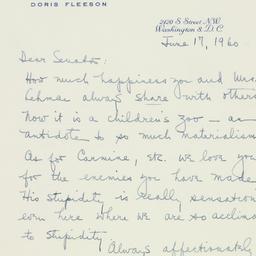 DORIS FLEESON
2120 S Street N.W.
Washington 8 D.C.
June 17, 1960
Dear Senator:
How much happiness you and Mrs.
Lehman always share with others
Now it is a children's zoo — an
antidote to so much materialism
As for Carmine, etc. we love you
for the enemies you have made
His stupidity is really sensation
even here where we are so acclima
to stupidity.
Always affectionately